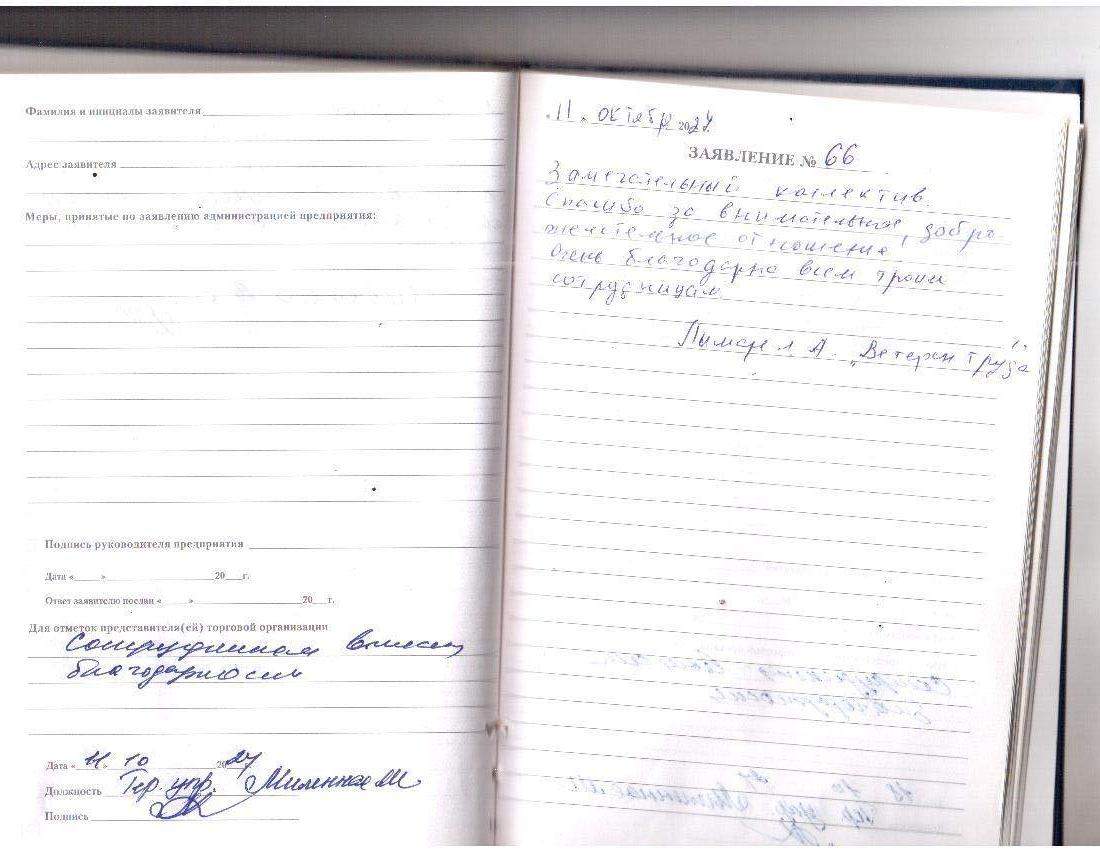 Фамилия и инициалы заявителя
Адрес заявителя
Меры, принятые по заявлению администрацией предприятия:
Подпись руководителя предприятия
Дата « » 20 г.
Ответ заявителю послан « » 20 г.
Для отметок представителя(ей) торговой организации
Сотрудникам
благодарности
Дата « 11 » 10 2024
Должность Тер. упр.
Подпись
„ 11 „ октябр 2024.
ЗАЯВЛЕНИЕ № 66
Замечательный коллектив.
Спасибо за внимательное, добро-
желательное отношение
Очень благодарна всем троим
сотрудницам
Л. А. „Ветеран труда“